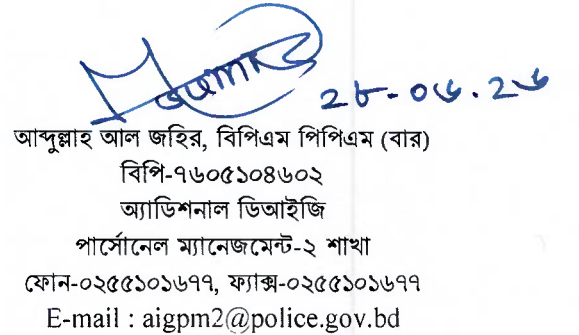 ২৮-০৬.২৬
আব্দুল্লাহ আল জহির, বিপিএম পিপিএম (বার)
বিপি-৭৬০৫১০৪৬০২
অ্যাডিশনাল ডিআইজি
পার্সোনেল ম্যানেজমেন্ট-২ শাখা
ফোন-০২৫৫১০১৬৭৭, ফ্যাক্স-০২৫৫১০১৬৭৭
E-mail : aigpm2@police.gov.bd